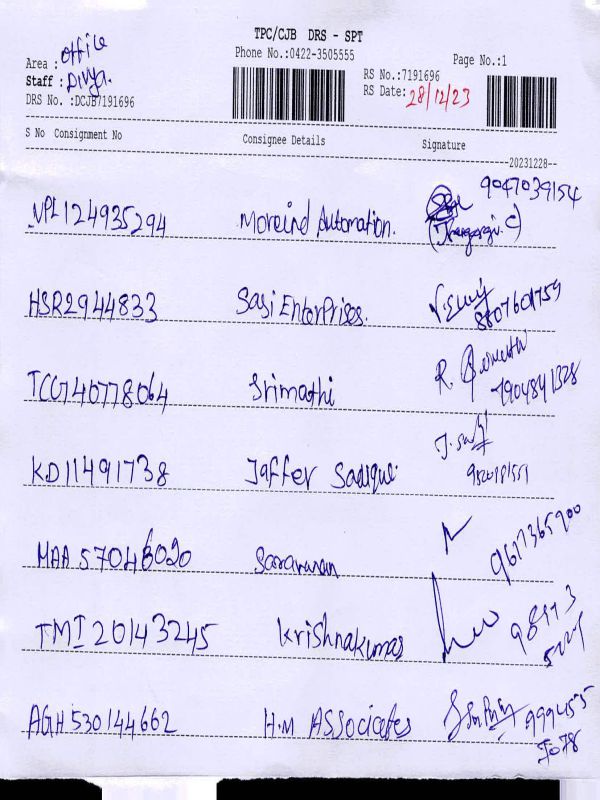 TPC/CJB DRS - SPT
Phone No.:0422-3505555
Page No.:1
Area : Office
Staff : Divya.
DRS No. :DCJB7191696
RS No.:7191696
RS Date: 28/12/23
S No Consignment No Consignee Details Signature
20231228
NPL124935294 Moreind Automation. 9047039154
HSR2944833 Sasi Enterprises. 8807601759
TCG740778064 Srimathi R. 7904841328
KD11491738 Jaffer Sadique
MAA 57046020 Saravanan 9617365900
TMI 20143245 Krishnakumar
AGH530144662 H.M Associates